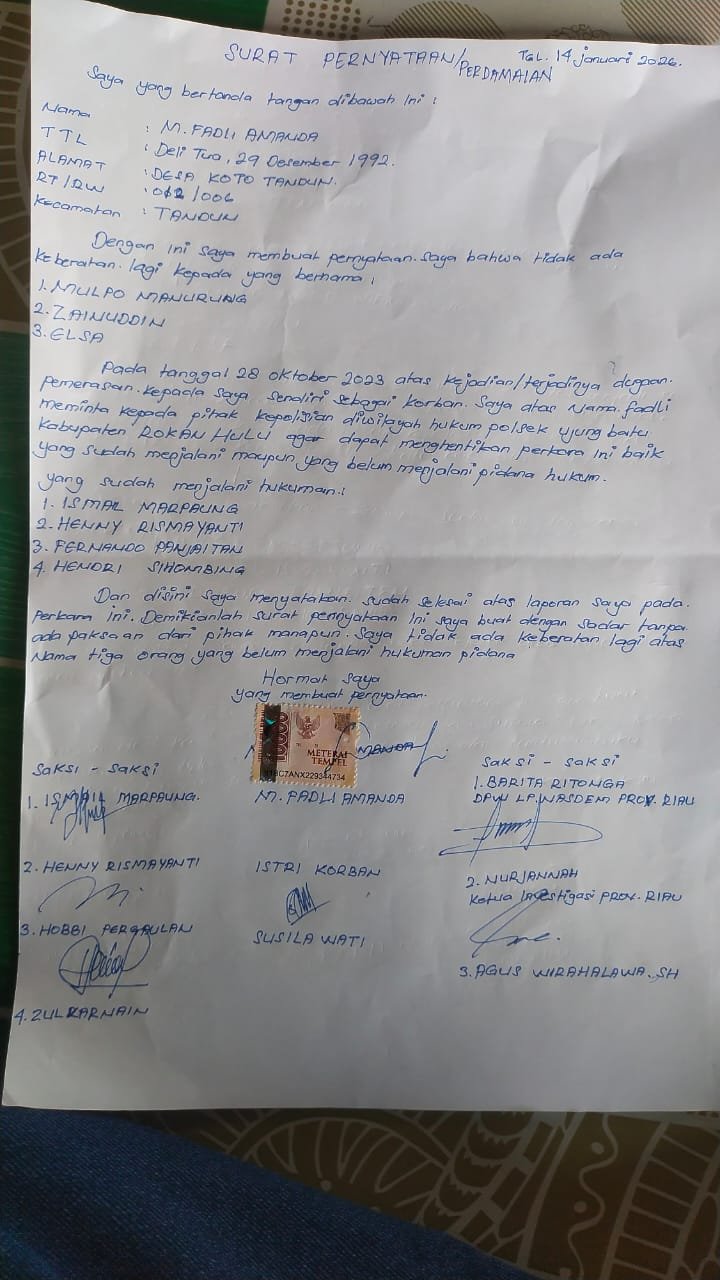 SURAT PERNYATAAN/
PERDAMAIAN
TGL. 14 januari 2026.
Saya yang bertanda tangan dibawah ini :
Nama : M. FADLI AMANDA
TTL : Deli Tua, 29 Desember 1992.
ALAMAT : DESA KOTO TANDUN.
RT/RW : 012/006
Kecamatan : TANDUN
Dengan ini saya membuat pernyataan. saya bahwa tidak ada
keberatan. lagi kepada yang bernama :
1. MULPO MANURUNG
2. ZAINUDDIN
3. ELSA
Pada tanggal 28 oktober 2023 atas kejadian/terjadinya dugaan.
pemerasan. kepada saya sendiri sebagai korban. Saya atas nama. fadli
meminta kepada pihak kepolisian diwilayah hukum polsek ujung batu
Kabupaten ROKAN HULU agar dapat menghentikan perkara ini baik
yang sudah menjalani maupun yang belum menjalani pidana hukum.
yang sudah menjalani hukuman :
1. ISMAIL MARPAUNG
2. HENNY RISMAYANTI
3. FERNANDO PANJAITAN
4. HENDRI SIHOMBING
Dan disini saya menyatakan. sudah selesai atas laporan saya pada.
perkara ini. Demikianlah surat pernyataan ini saya buat dengan sadar tanpa
ada paksaan dari pihak manapun. Saya tidak ada keberatan lagi atas
Nama tiga orang yang belum menjalani hukuman pidana
Hormat saya
yang membuat pernyataan.
10000
METERAI
TEMPEL
AMANDA
M. FADLI AMANDA
ISTRI KORBAN
SUSILA WATI
saksi - saksi
1. ISMAIL MARPAUNG.
2. HENNY RISMAYANTI
3. HOBBI PERGAULAN
4. ZULKARNAIN
saksi - saksi
1. BARITA RITONGA
DPW LP. NASDEM PROV. RIAU
2. NURJANNAH
Ketua Investigasi PROV. RIAU
3. AGUS WIRAHALAWA. SH